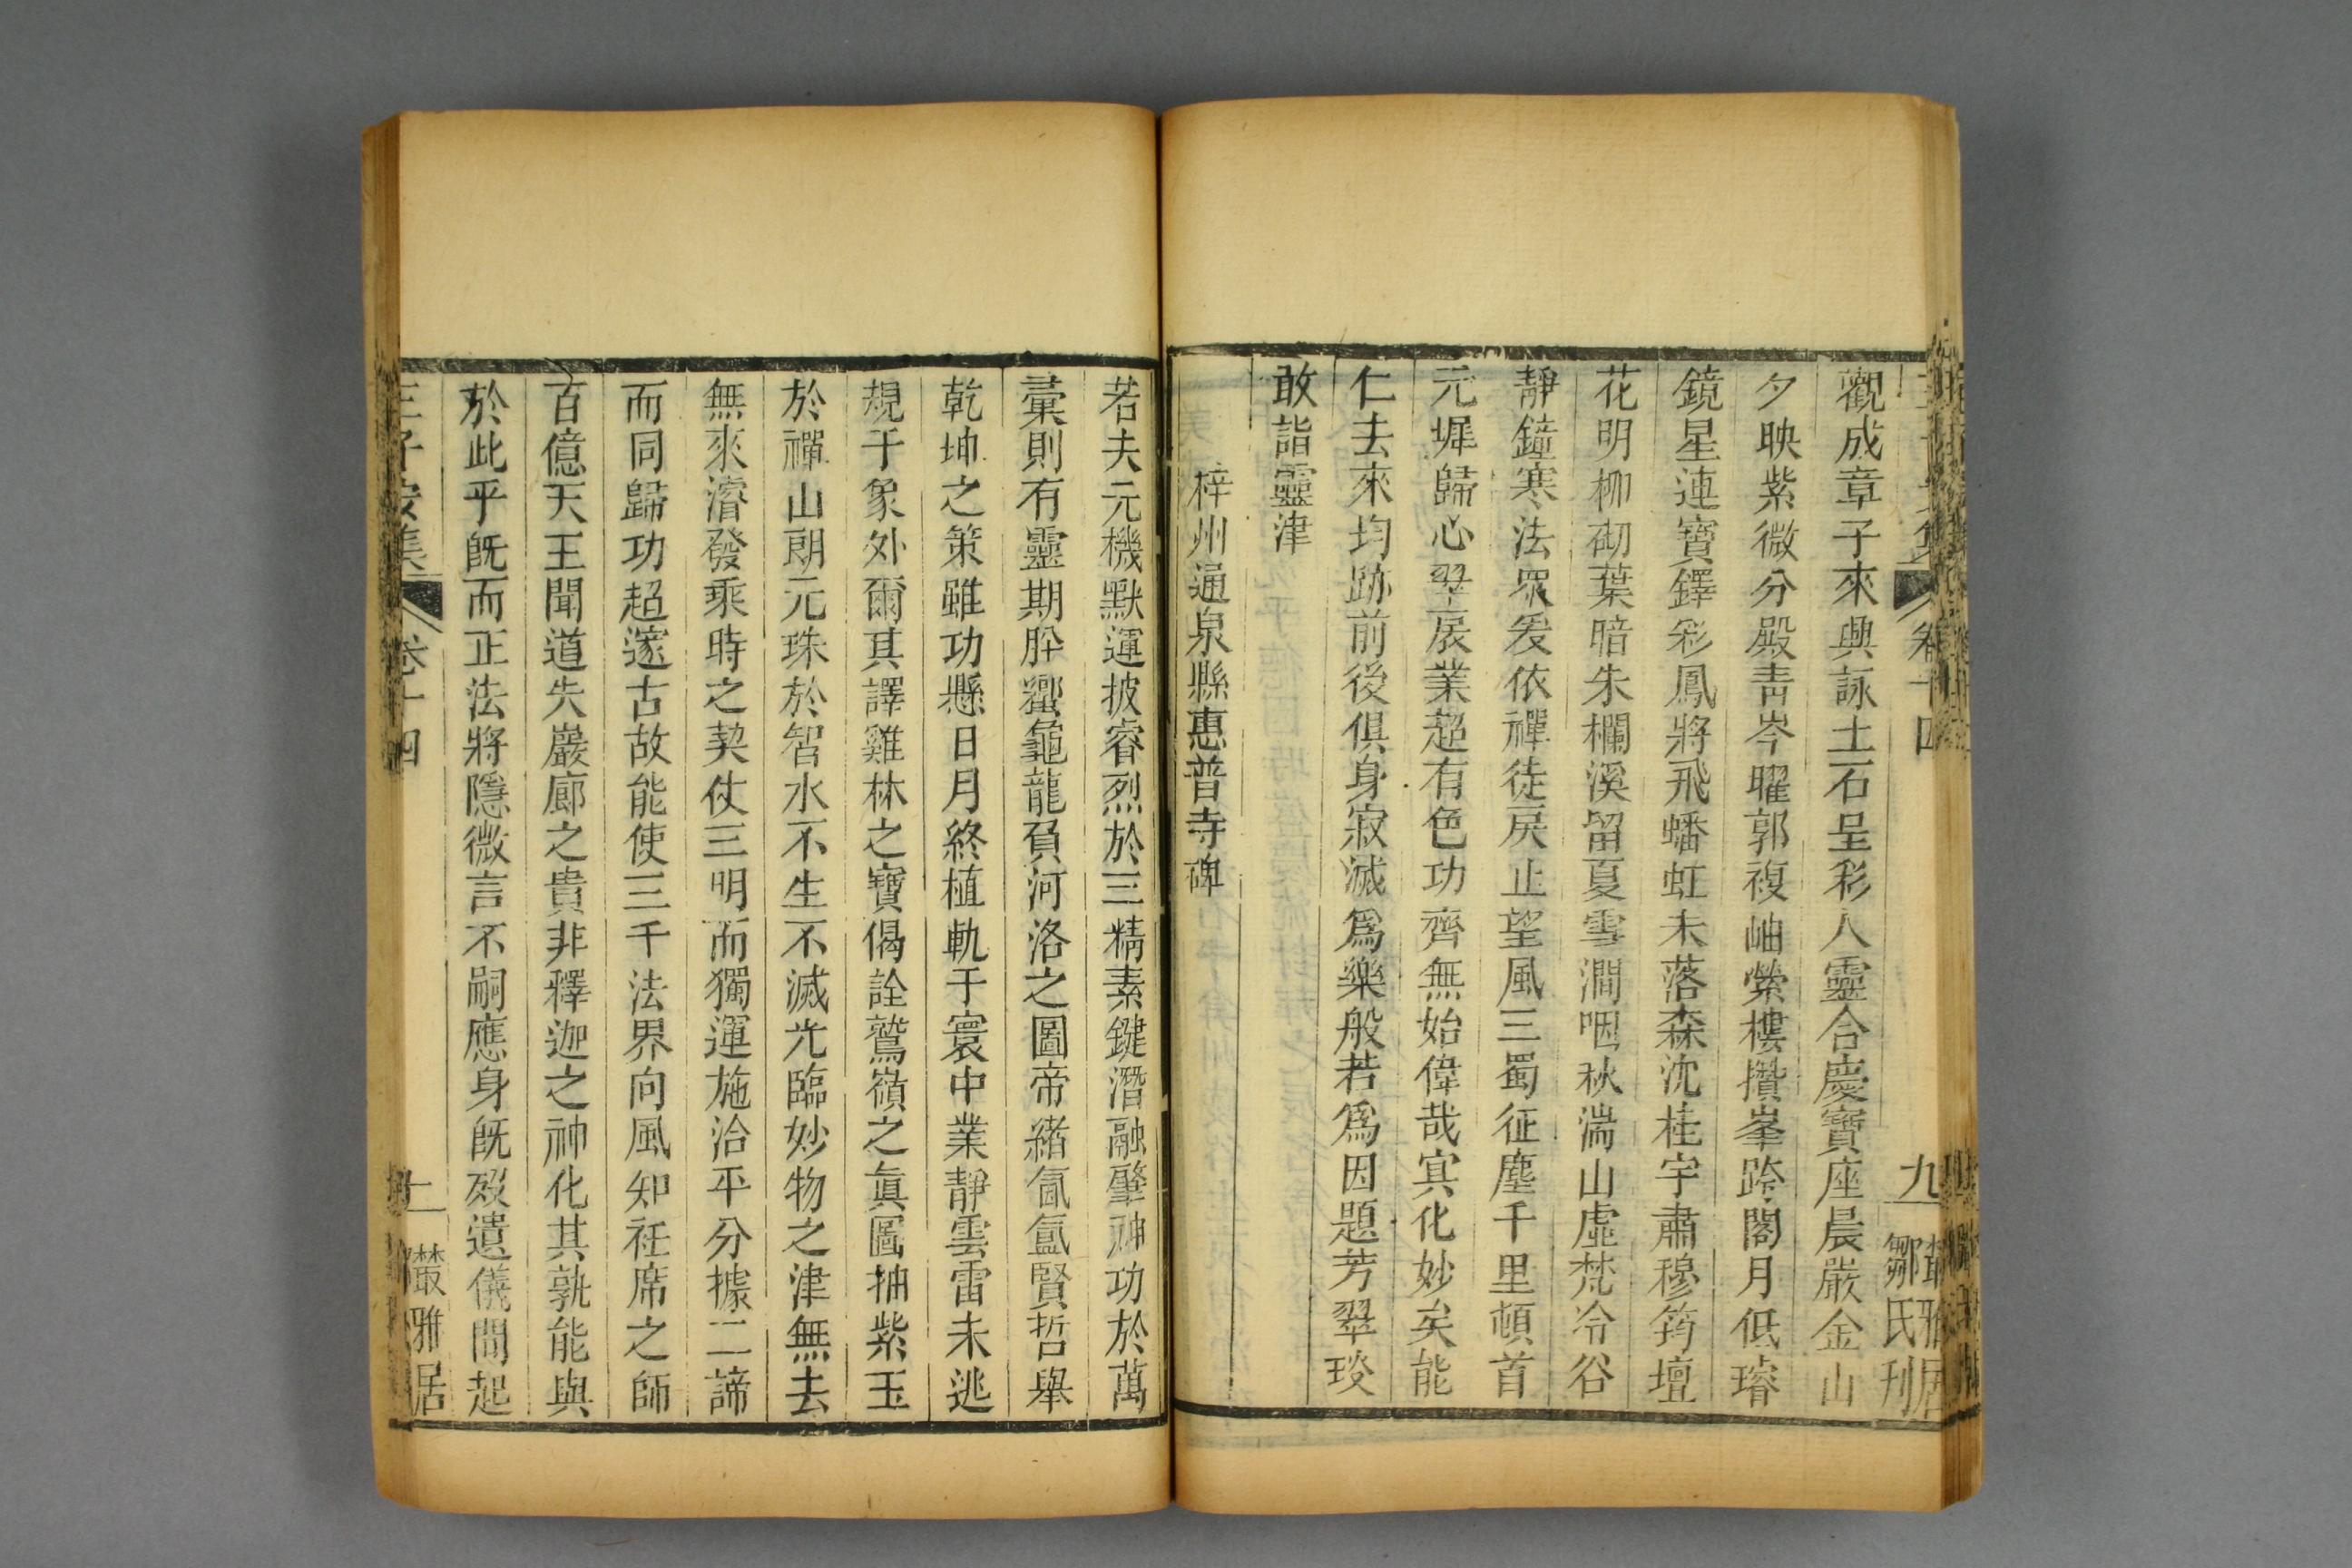 觀成章子來典詠土石呈彩人靈合慶寶座晨嚴金山
夕映紫微分殿靑岑曜郭複岫縈樓攢峯跨閣月低璿
鏡星連寶鐸彩鳳將飛蟠虹未落森沈桂宇肅穆筠壇
花明柳砌葉暗朱欄溪留夏雪澗咽秋湍山虛梵冷谷
靜鐘寒法眾爰依禪徒戾止望風三蜀征塵千里頓首
元墀歸心翠扆業超有色功齊無始偉哉寘化妙矣能
仁去來均跡前後俱身寂滅爲樂般若爲因題芳翠琰
敢詣靈津
梓州通泉縣惠普寺碑
九
鄒氏刊
若夫元機默運披睿烈於三精素鍵潛融肇神功於萬
彚則有靈期肸蠁龜龍負河洛之圖帝緒氤氳賢哲舉
乾坤之策雖功懸日月終植軌于寰中業靜雲雷未逃
規于象外爾其譯雞林之寶偈詮鷲嶺之眞圖抽紫玉
於禪山朗元珠於智水不生不滅光臨妙物之津無去
無來濬發乘時之契仗三明而獨運施洽平分據二諦
而同歸功超邃古故能使三千法界向風知衽席之師
百億天王聞道失巖廊之貴非釋迦之神化其孰能與
於此乎旣而正法將隱微言不嗣應身旣歿遺儀間起
王子安集
卷十四
叢雅居